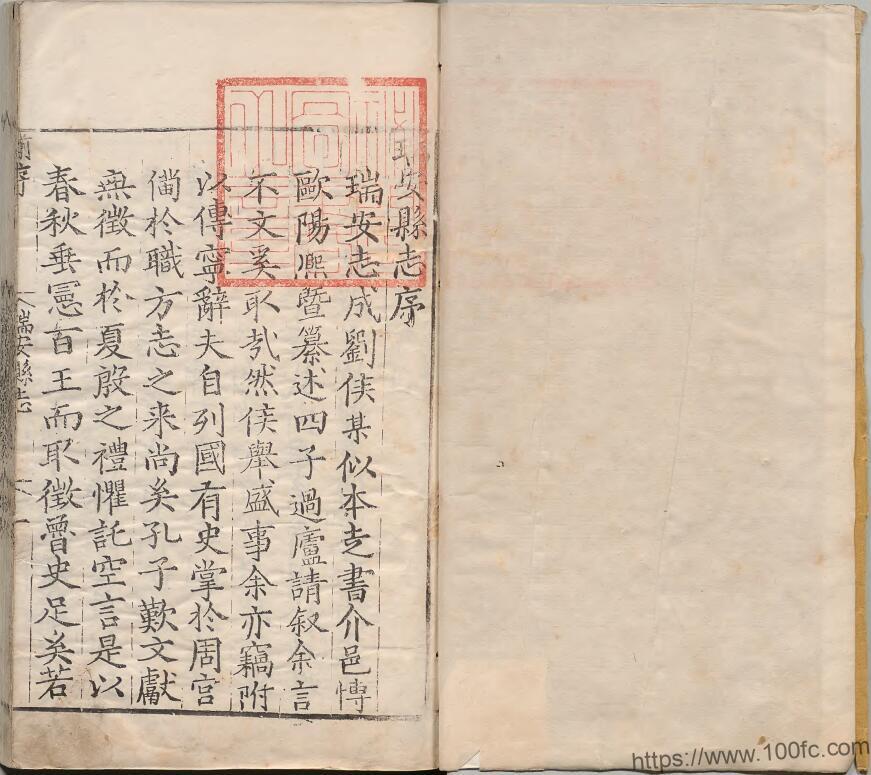 瑞安縣志序
瑞安志成劉侯某似本走書介邑博
歐陽熈暨纂述四子過廬請叙余言
不文奚取㢤然侯舉盛事余亦竊附
以傳寧辭夫自列國有史掌於周官
偹於職方志之来尚矣孔子歎文獻
無徵而於夏殷之禮懼託空言是以
春秋垂憲百王而取徵魯史足矣若
瑞安縣志
一
https://www.100fc.com